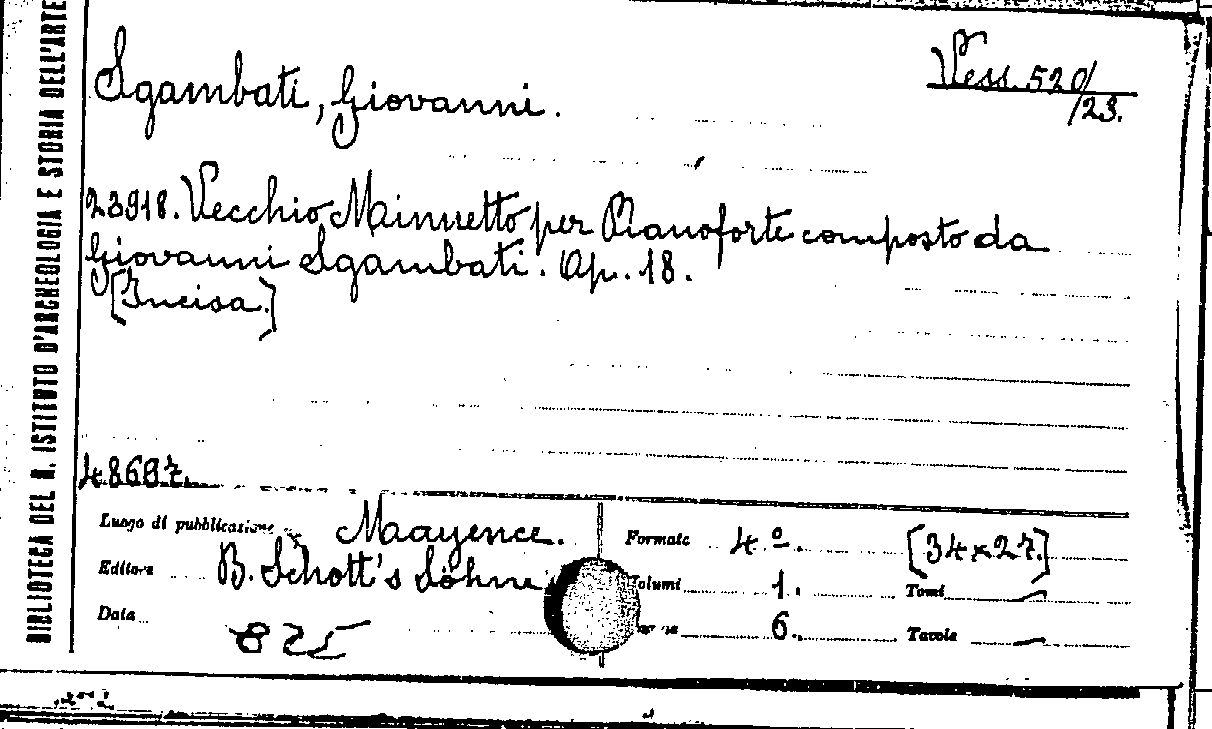 BIBLIOTECA DEL R. ISTITUTO D'ARCHEOLOGIA E STORIA DELL'ARTE
Sgambati, Giovanni.
Vess. 520/
/23.
23918. Vecchio Minuetto per Pianoforte composto da
Giovanni Sgambati. Op. 18.
[Incisa.]
48687.
Luogo di pubblicazione Maayence.
Formato 4º. [34×27.]
Editore B. Schott's Söhne
Volumi 1. Tomi —
Data
6. Tavole —